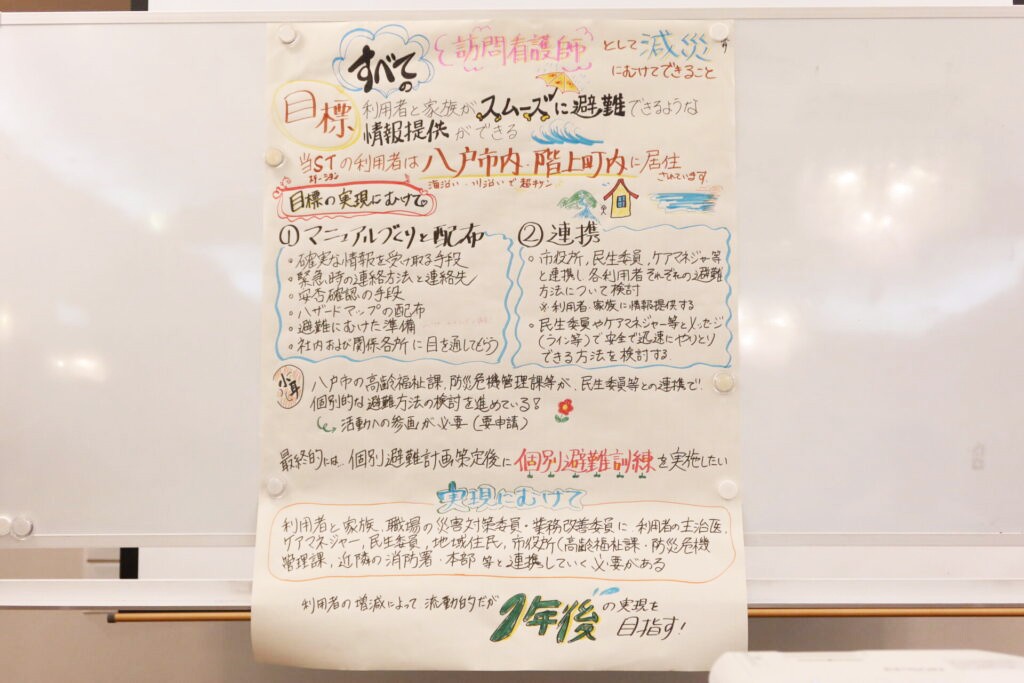 すべての
訪問看護師
として減災
にむけてできること
目標
利用者と家族がスムーズに避難できるような
情報提供ができる
当STの利用者は八戸市内・階上町内に居住
ステーション
されています。
海沿い・川沿いで超キケン
目標の実現にむけて
① マニュアルづくりと配布
・確実な情報を受け取る手段
・緊急時の連絡方法と連絡先
・安否確認の手段
・ハザードマップの配布
・避難にむけた準備
・社内および関係各所に目を通してもらう
② 連携
・市役所,民生委員,ケアマネジャー等
と連携し各利用者それぞれの避難
方法について検討
※利用者・家族に情報提供する
・民生委員やケアマネジャー等とメッセージ
(ライン等)で安全で迅速にやりとり
できる方法を検討する
小耳
八戸市の高齢福祉課,防災危機管理課等が、民生委員等との連携で
個別的な避難方法の検討を進めている?
活動への参画が必要(要申請)
最終的には、個別避難計画策定後に個別避難訓練を実施したい
実現にむけて
利用者と家族,職場の災害対策委員・業務改善委員に 利用者の主治医,
ケアマネジャー,民生委員,地域住民,市役所(高齢福祉課・防災危機
管理課,近隣の消防署・本部 等と連携していく必要がある
利用者の増減によって 流動的だが 1年後の実現を
目指す!